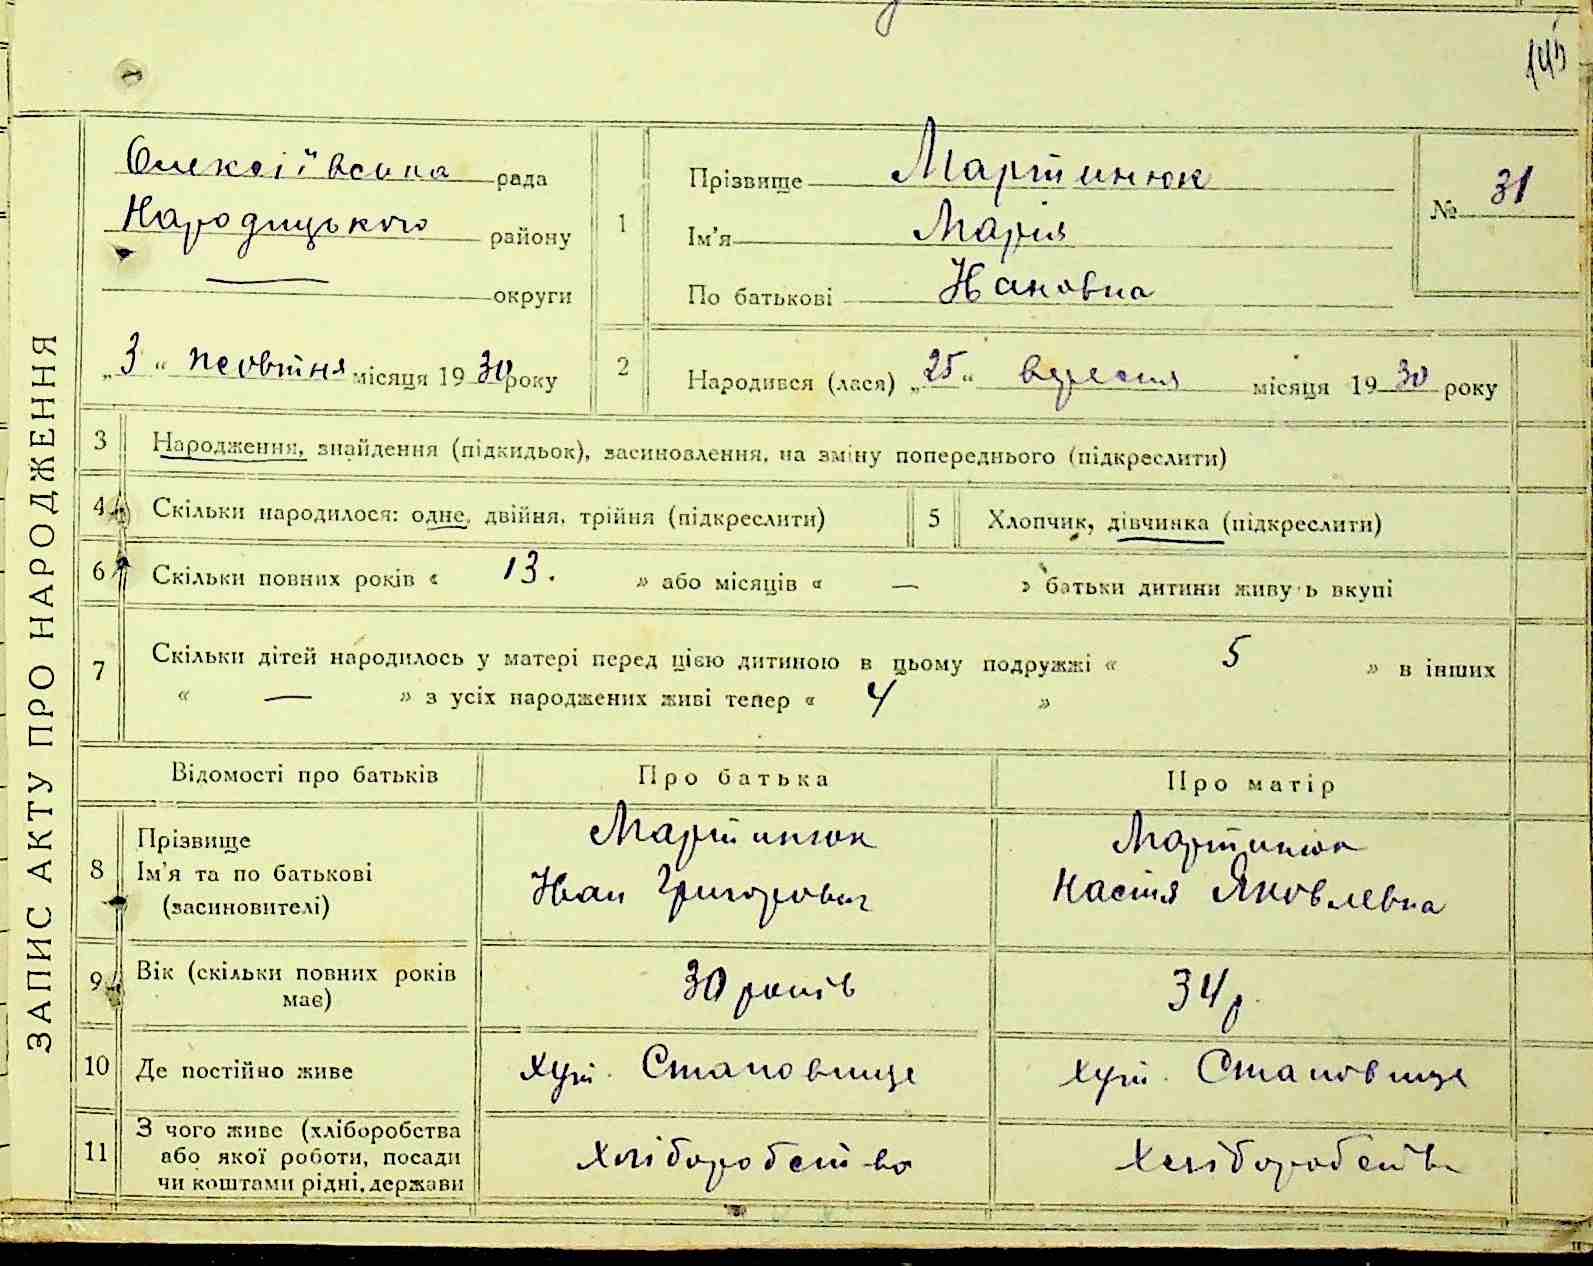 145
ЗАПИС АКТУ ПРО НАРОДЖЕННЯ
Олексіївська рада
Народицького району
— округи
„3“ жовтня місяця 1930 року
1
Прізвище Мартинюк
Ім'я Марія
По батькові Івановна
№ 31
2
Народився (лася) „25“ вересня місяця 1930 року
3 Народження, знайдення (підкидьок), засиновлення, на зміну попереднього (підкреслити)
4 Скільки народилося: одне, двійня, трійня (підкреслити)
5 Хлопчик, дівчинка (підкреслити)
6 Скільки повних років « 13. » або місяців « — » батьки дитини живуть вкупі
7 Скільки дітей народилось у матері перед цією дитиною в цьому подружжі « 5 » в інших
« — » з усіх народжених живі тепер « 4 »
Відомості про батьків Про батька Про матір
8 Прізвище
Ім'я та по батькові
(засиновителі)
Мартинюк
Іван Григорович
Мартинюк
Настя Яковлевна
9 Вік (скільки повних років
має)
30 років
34 р.
10 Де постійно живе
хут. Становище
хут. Становище
11 З чого живе (хліборобства
або якої роботи, посади
чи коштами рідні, держави
хліборобство
хліборобств